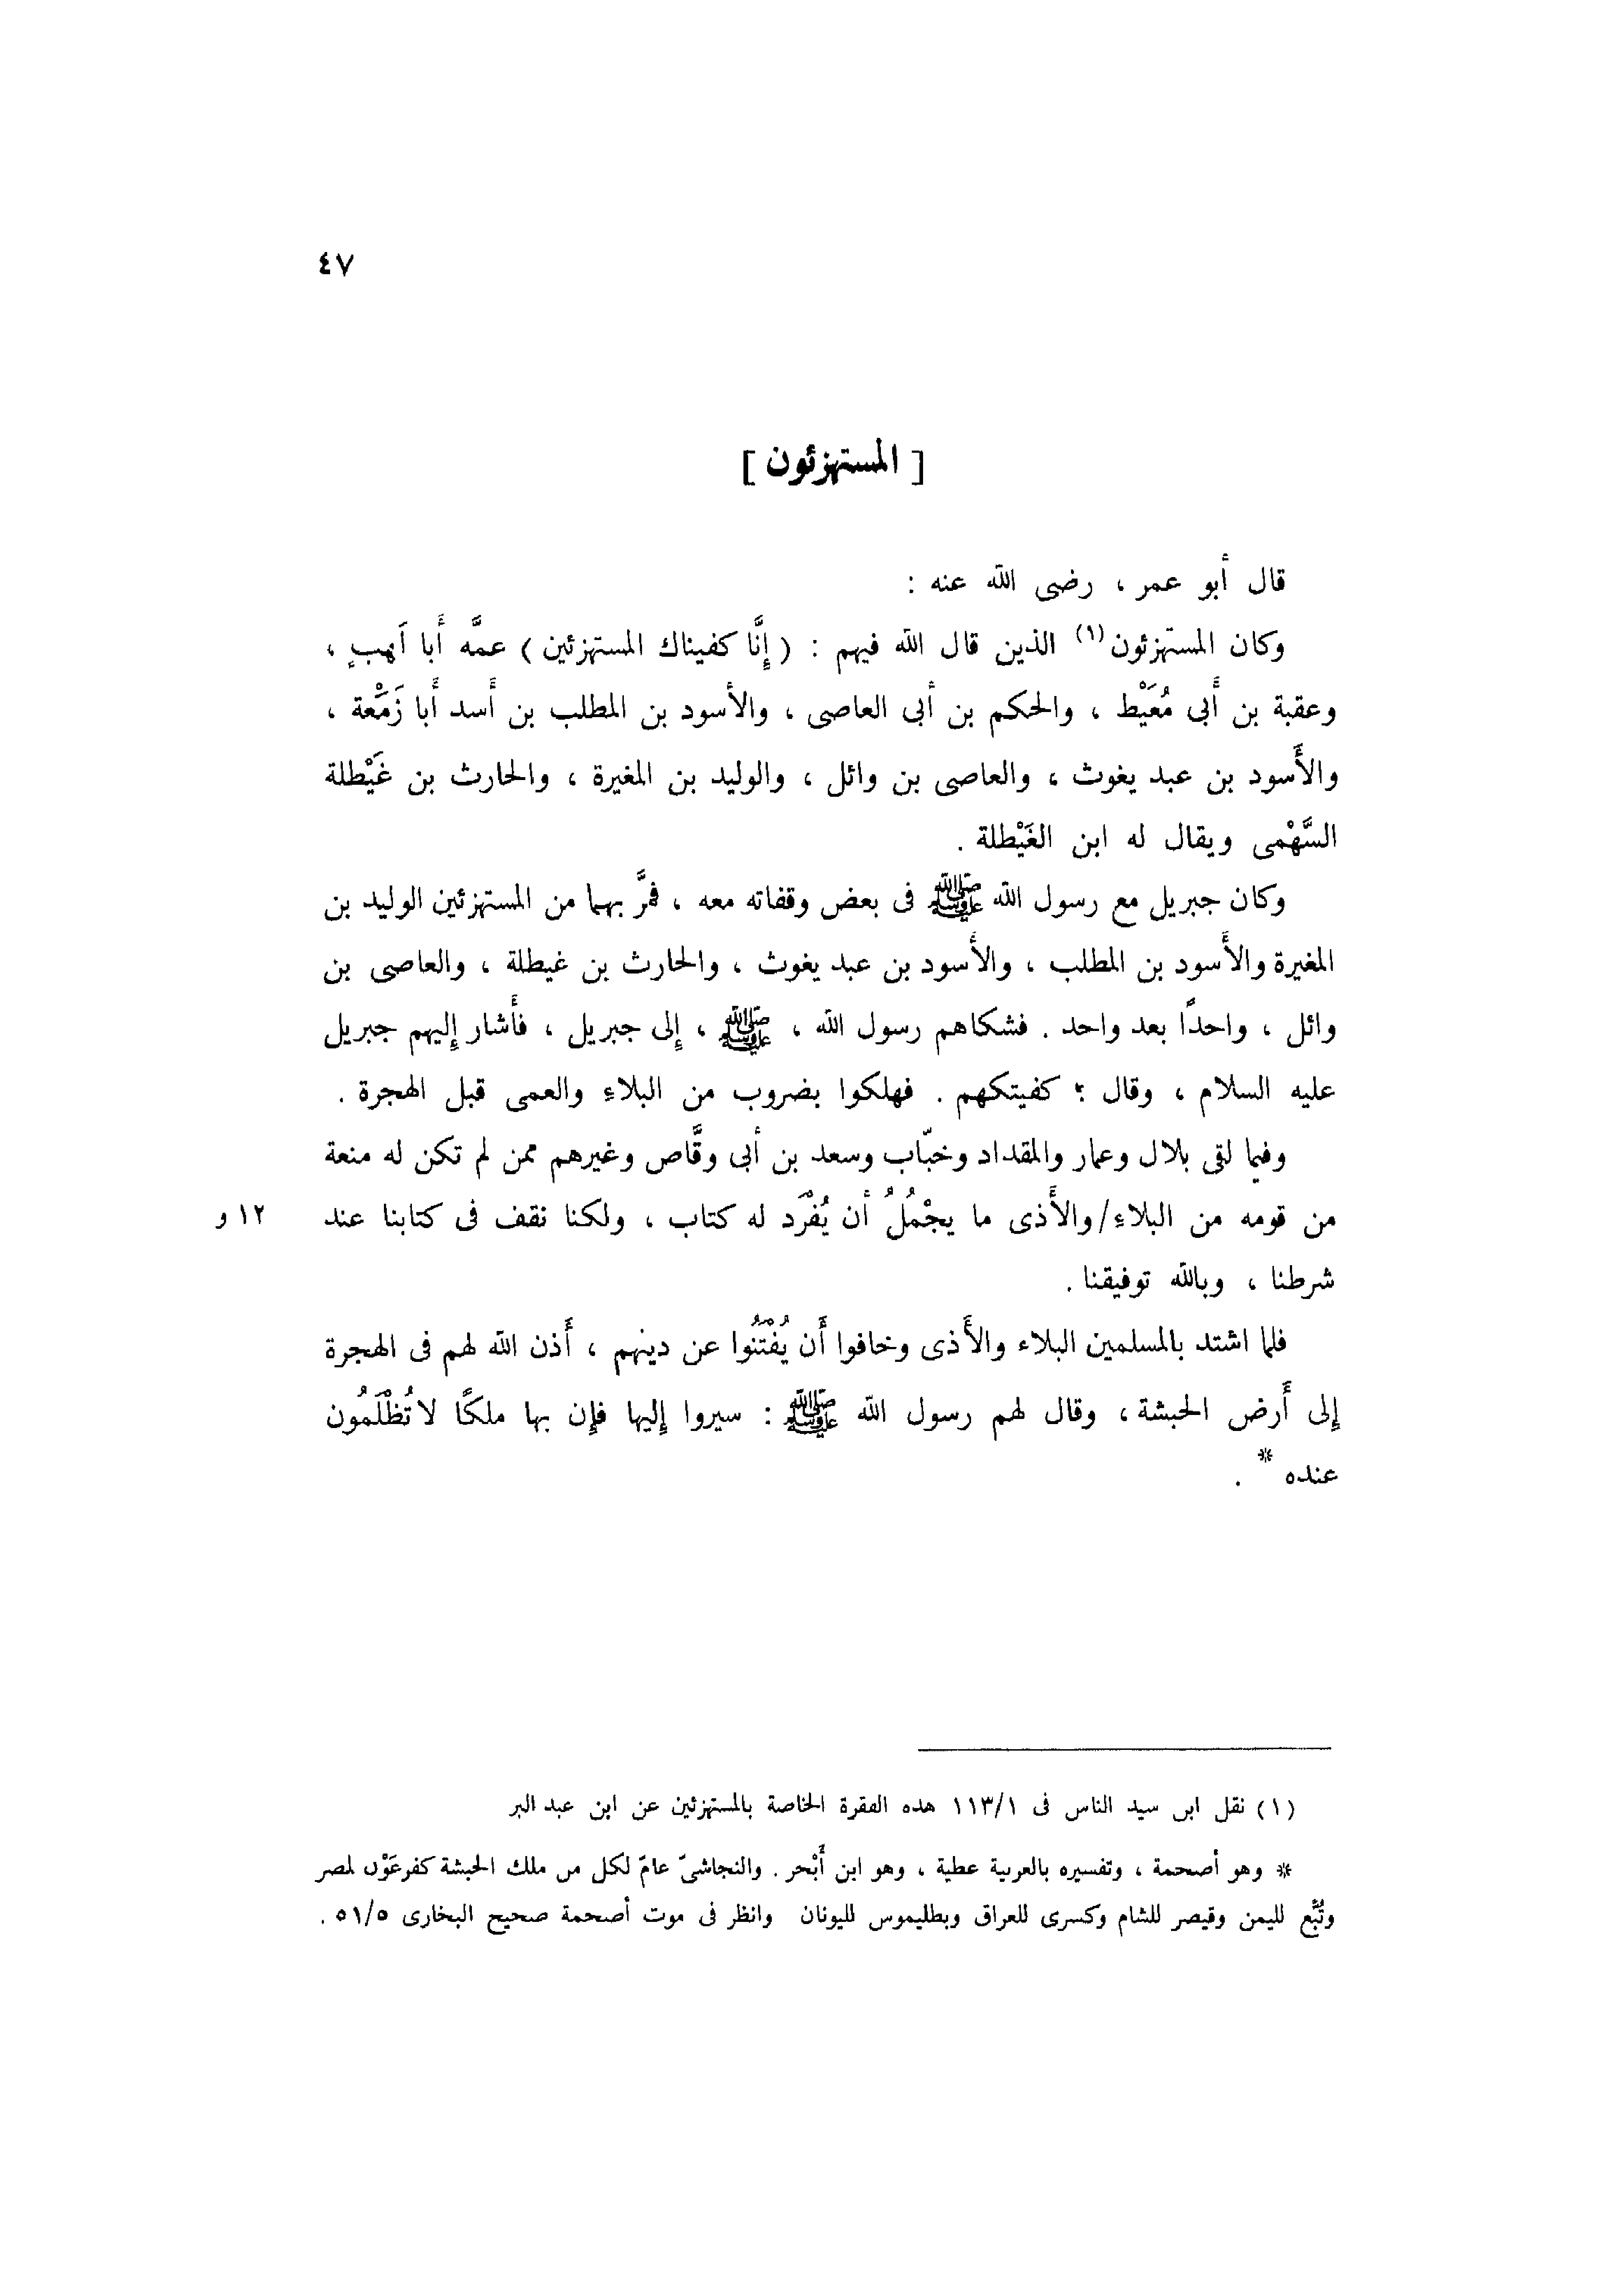 ٤٧
[ المستهزئون ]
قال أبو عمر ، رضى الله عنه :
وكان المستهزئون(١) الذين قال الله فيهم : ( إِنَّا كفيناك المستهزئين ) عمَّه أَبا لَهبٍ ،
وعقبة بن أَبى مُعَيْط ، والحكم بن أبى العاصى ، والأسود بن المطلب بن أَسد أَبا زَمْعة ،
والأَسود بن عبد يغوث ، والعاصى بن وائل ، والوليد بن المغيرة ، والحارث بن غَيْطلة
السَّهْمى ويقال له ابن الغَيْطلة .
وكان جبريل مع رسول الله ﷺ فى بعض وقفاته معه ، فمرَّ بهما من المستهزئين الوليد بن
المغيرة والأَسود بن المطلب ، والأسود بن عبد يغوث ، والحارث بن غيطلة ، والعاصى بن
وائل ، واحدًا بعد واحد . فشكاهم رسول الله ، ﷺ ، إِلى جبريل ، فأَشار إِليهم جبريل
عليه السلام ، وقال : كفيتكهم . فهلكوا بضروب من البلاء والعمى قبل الهجرة .
وفيما لقى بلال وعمار والمقداد وخبّاب وسعد بن أبى وقَّاص وغيرهم ممن لم تكن له منعة
من قومه من البلاء/والأَذى ما يجْمُلُ أن يُفْرَد له كتاب ، ولكنا نقف فى كتابنا عند ١٢ و
شرطنا ، وبالله توفيقنا .
فلما اشتد بالمسلمين البلاء والأَذى وخافوا أَن يُفْتَنُوا عن دينهم ، أَذن الله لهم فى الهجرة
إِلى أَرض الحبشة ، وقال لهم رسول الله ﷺ : سيروا إِليها فإِن بها ملكًا لا تُظْلَمُون
عنده * .
(١) نقل ابن سيد الناس فى ١١٣/١ هذه الفقرة الخاصة بالمستهزئين عن ابن عبد البر
* وهو أصحمة ، وتفسيره بالعربية عطية ، وهو ابن أَبْحر . والنجاشىّ عامّ لكل من ملك الحبشة كفرعَوْن لمصر
وتُبَّع لليمن وقيصر للشام وكسرى للعراق وبطليموس لليونان وانظر فى موت أصحمة صحيح البخارى ٥١/٥ .